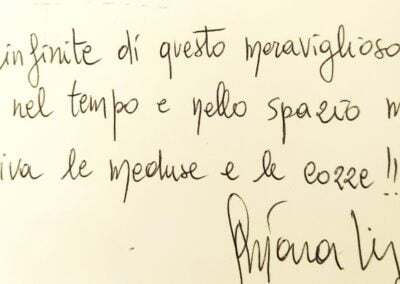 infinite di questo meraviglioso
nel tempo e nello spazio m
iva le meduse e le cozze!!